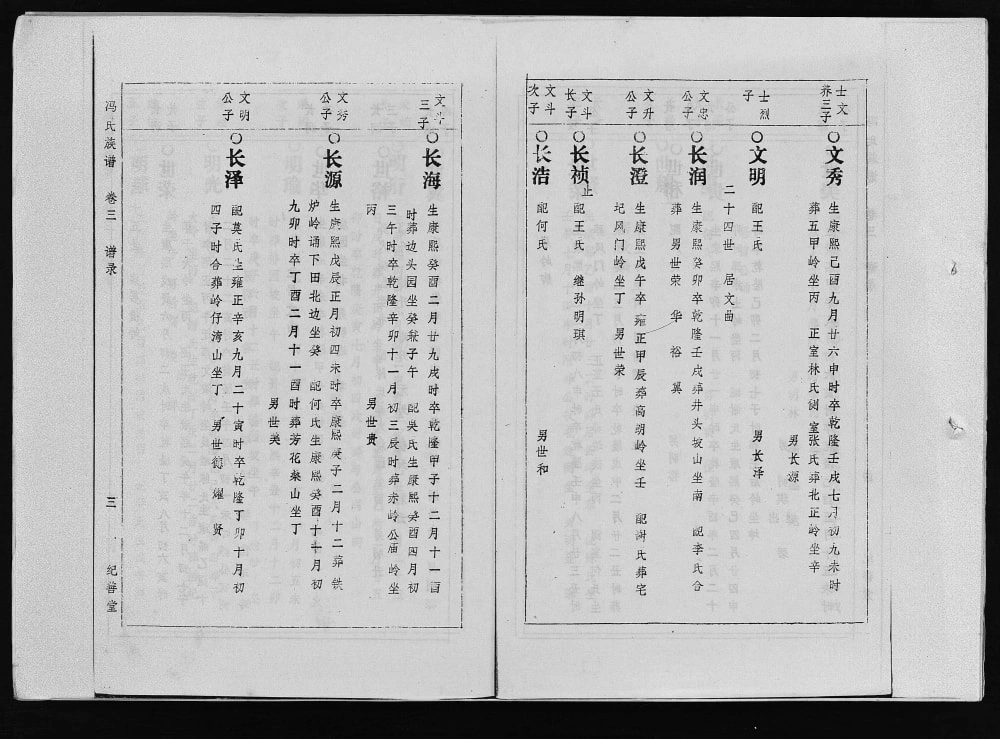 士文
养三子
○文秀
生康熙己酉九月廿六申时卒乾隆壬戌七月初九未时
葬五甲岭坐丙 正室林氏侧室张氏葬北正岭坐辛
男长源
士烈
子
○文明
配王氏 男长泽
二十四世 居文曲
文忠
公子
○长润
生康熙癸卯卒乾隆壬戌葬井头坡山坐南 配李氏合
葬 男世荣 华 裕 翼
文升
公子
○长澄
生康熙戊午卒雍正甲辰葬高朗岭坐壬 配谢氏葬宅
圮风门岭坐丁 男世荣
文斗
长子
○长祯
止
配王氏 继孙明琪
文斗
次子
○长浩
配何氏 男世和
文斗
三子
○长海
生康熙癸酉二月廿九戌时卒乾隆甲子十二月十一酉
时葬边头园坐癸兼子午 配吴氏生康熙癸酉四月初
三午时卒乾隆辛卯十一月初三辰时葬赤岭公庙岭坐
丙 男世贵
文秀
公子
○长源
生康熙戊辰正月初四未时卒康熙庚子二月十二葬铁
炉岭诵下田北边坐癸 配何氏生康熙癸酉十一月初
九卯时卒丁酉二月十一酉时葬芳花桑山坐丁
男世美
文明
公子
○长泽
配莫氏生雍正辛亥九月二十寅时卒乾隆丁卯十月初
四子时合葬岭仔湾山坐丁 男世德 耀 贤
冯氏族谱 卷三 谱录 三 纪善堂